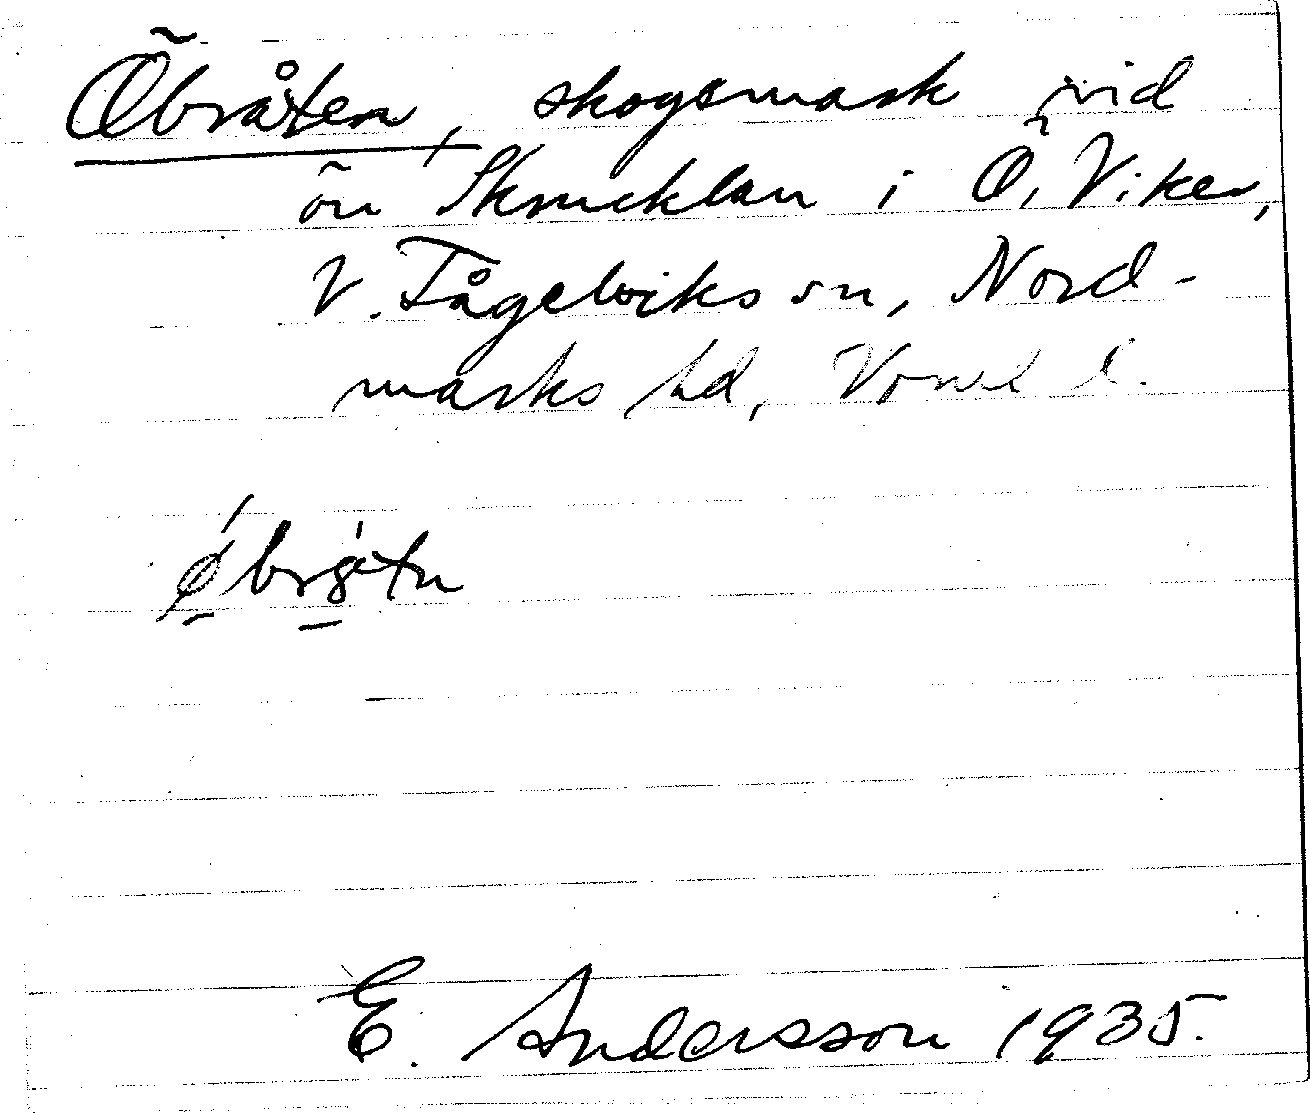 Öbråten, skogsmark vid
ön Skrucklan i Ö. Viker,
V. Fågelviks sn, Nord-
marks hd, Värml l.
E. Andersson 1935.